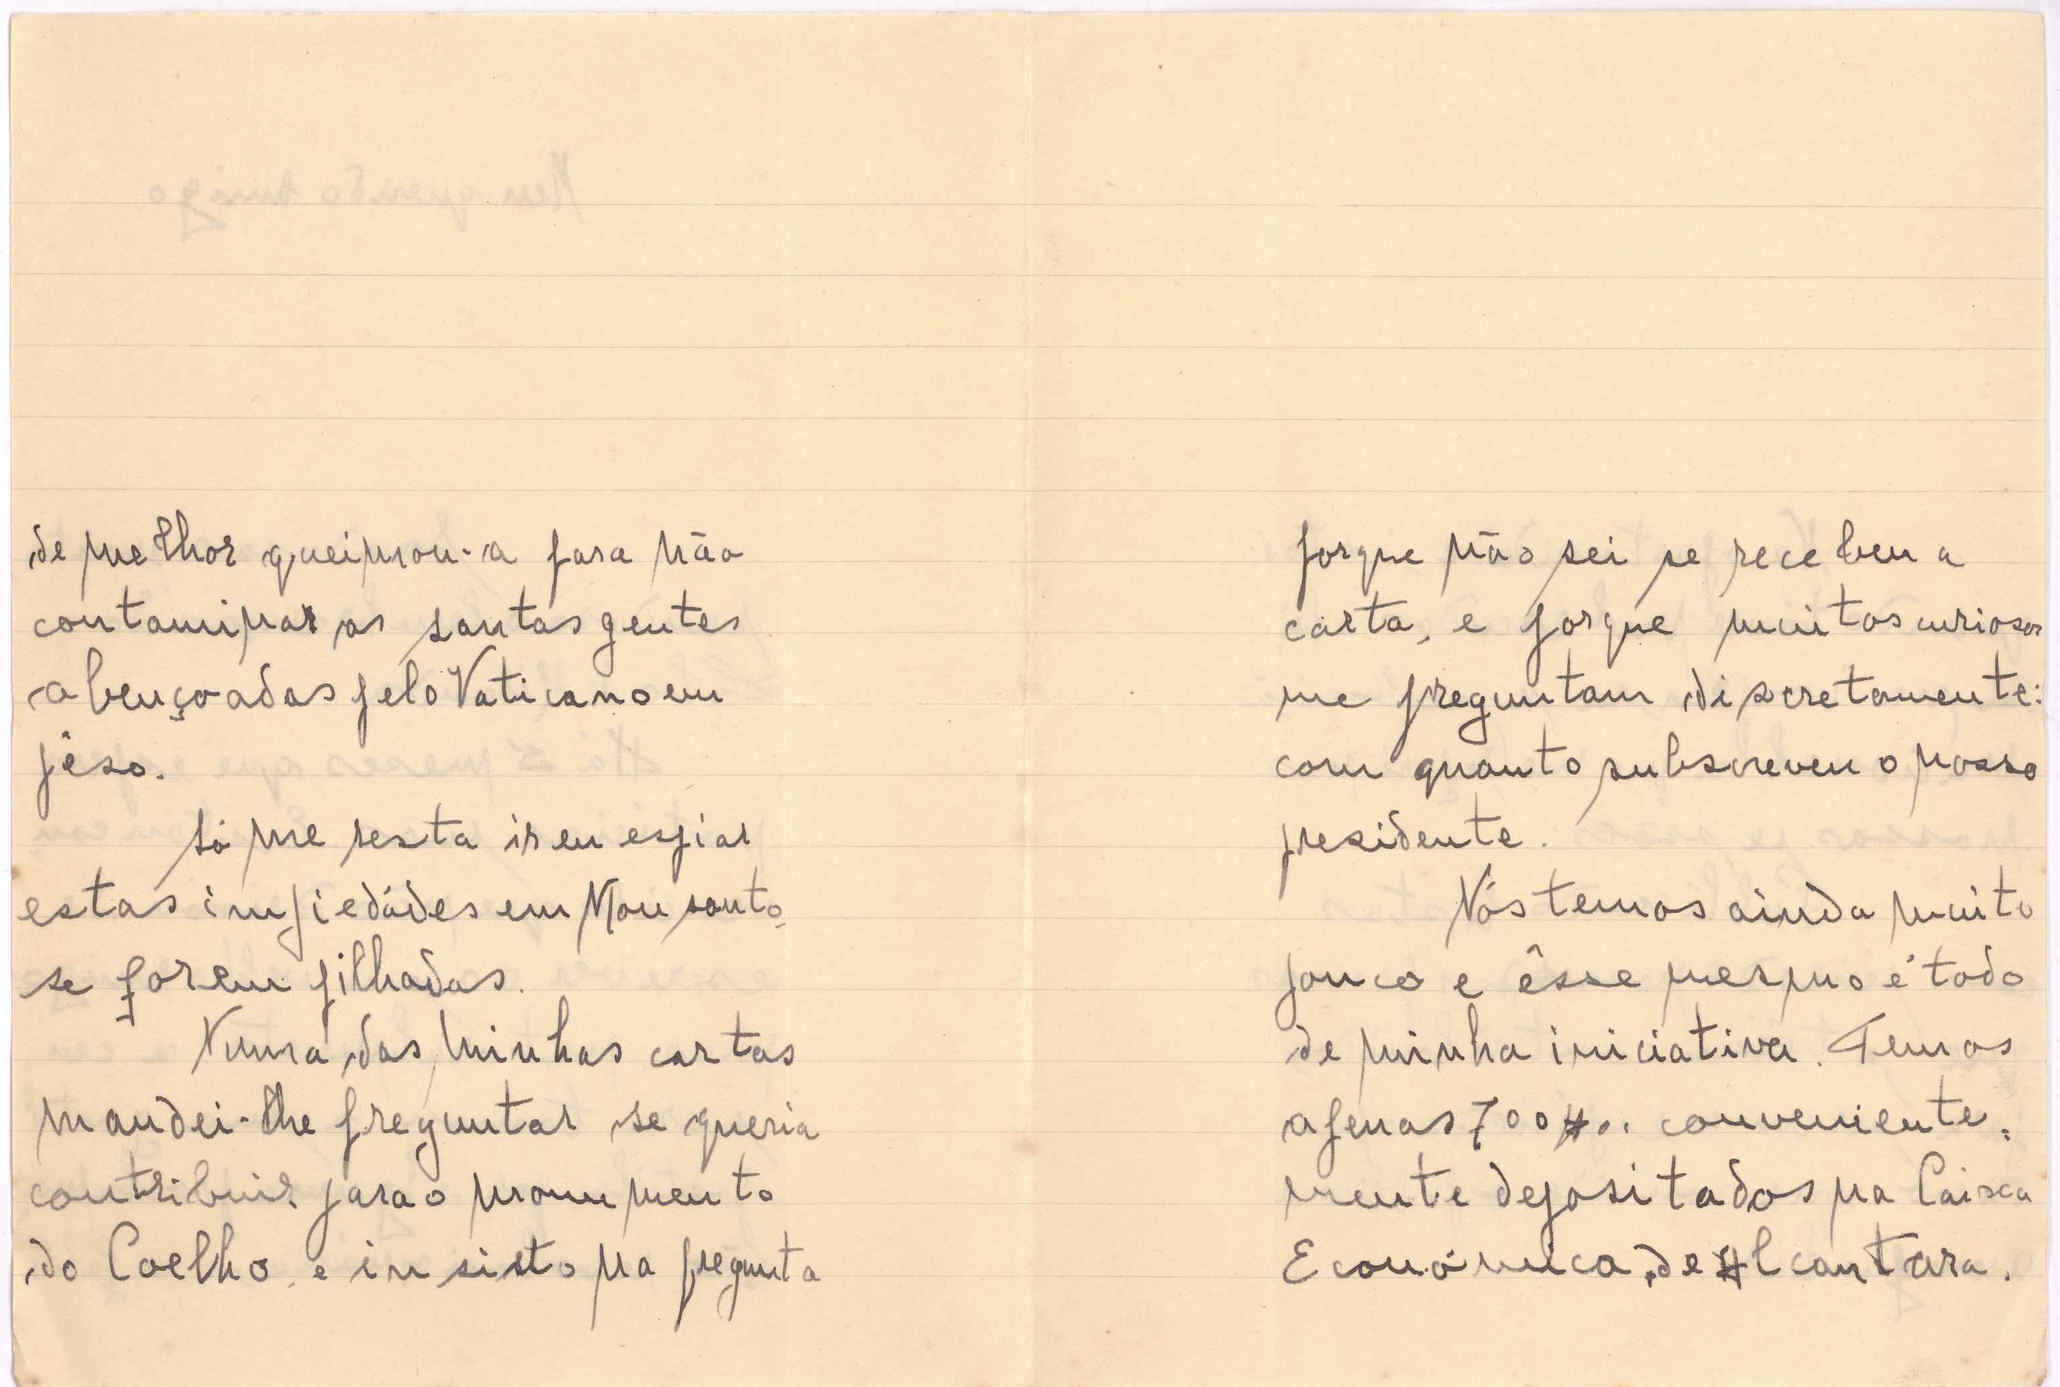 de melhor queimou-a para não
contaminar as santas gentes
abençoadas pelo Vaticano em
pêso.
Só me resta ir eu espiar
estas impiedádes em Monsanto
se forem pilhadas.
Numa das minhas cartas
mandei-lhe preguntar se queria
contribuir para o monumento
do Coelho, e insisto na pregunta
porque não sei se recebeu a
carta, e porque muitos curiosos
me preguntam discretamente:
com quanto subscreveu o nosso
presidente.
Nós temos ainda muito
pouco e êsse mesmo é todo
de minha iniciativa. Temos
apenas 700$00 conveniente-
mente depositados na Caixa
Económica de Alcantara.